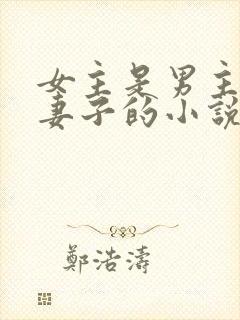 女主是男主
妻子的小說
鄭浩濤